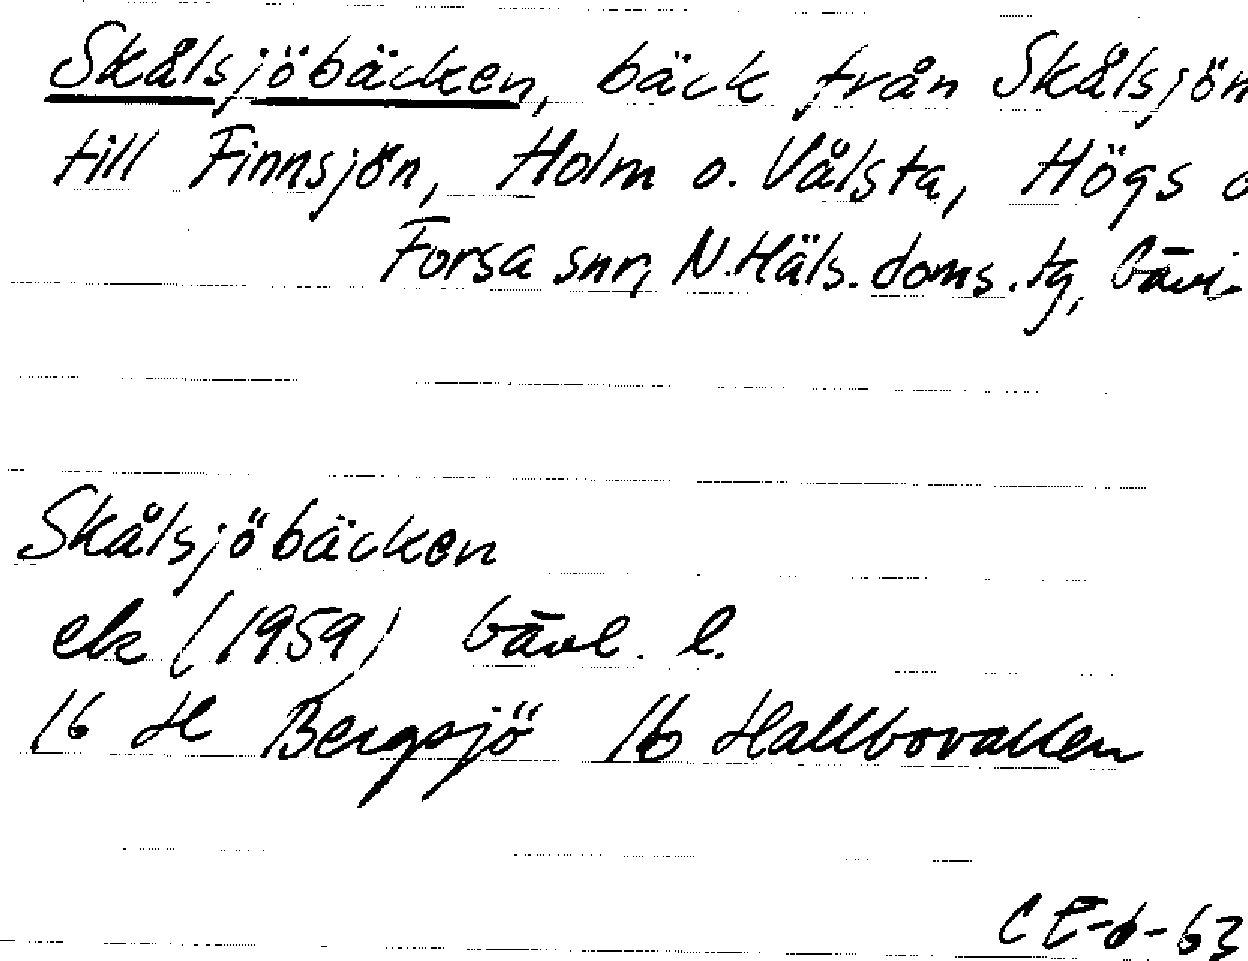 Skålsjöbäcken, bäck från Skålsjön
till Finnsjön, Holm o. Vålsta, Högs o
Forsa snr, N.Häls. doms. tg, Gävl.
Skålsjöbäcken
ek (1959) Gävl. l.
16 H Bergsjö 16 Hallbovallen
CE-6-63